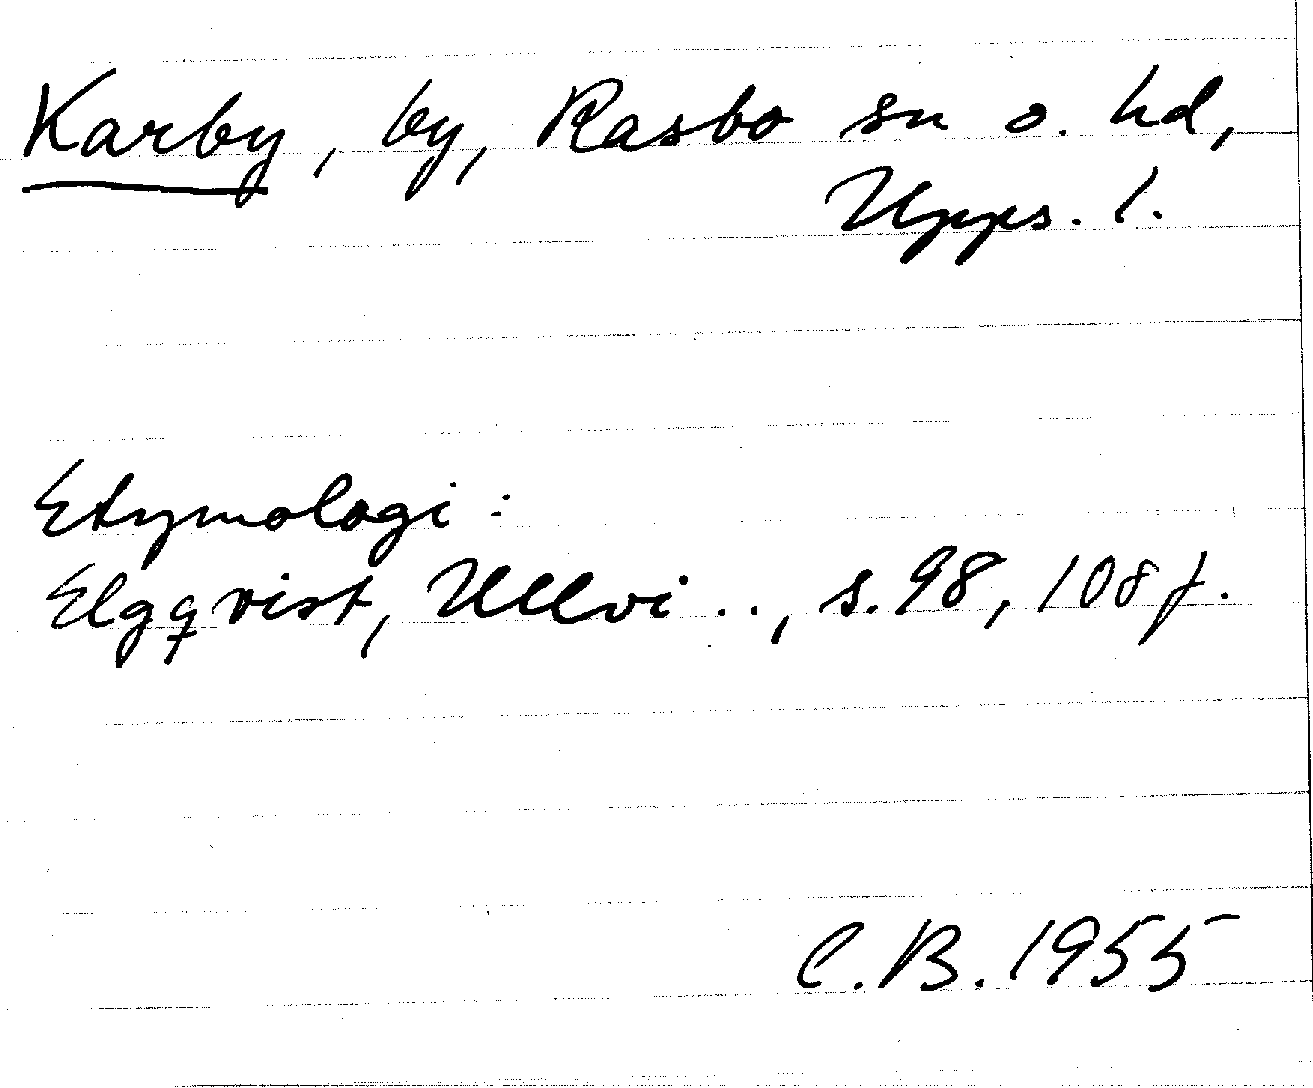 Karby, by, Rasbo sn o. hd,
Upps. l.
Etymologi:
Elgqvist, Ullvi . . , s. 98, 108 f.
C.B. 1955